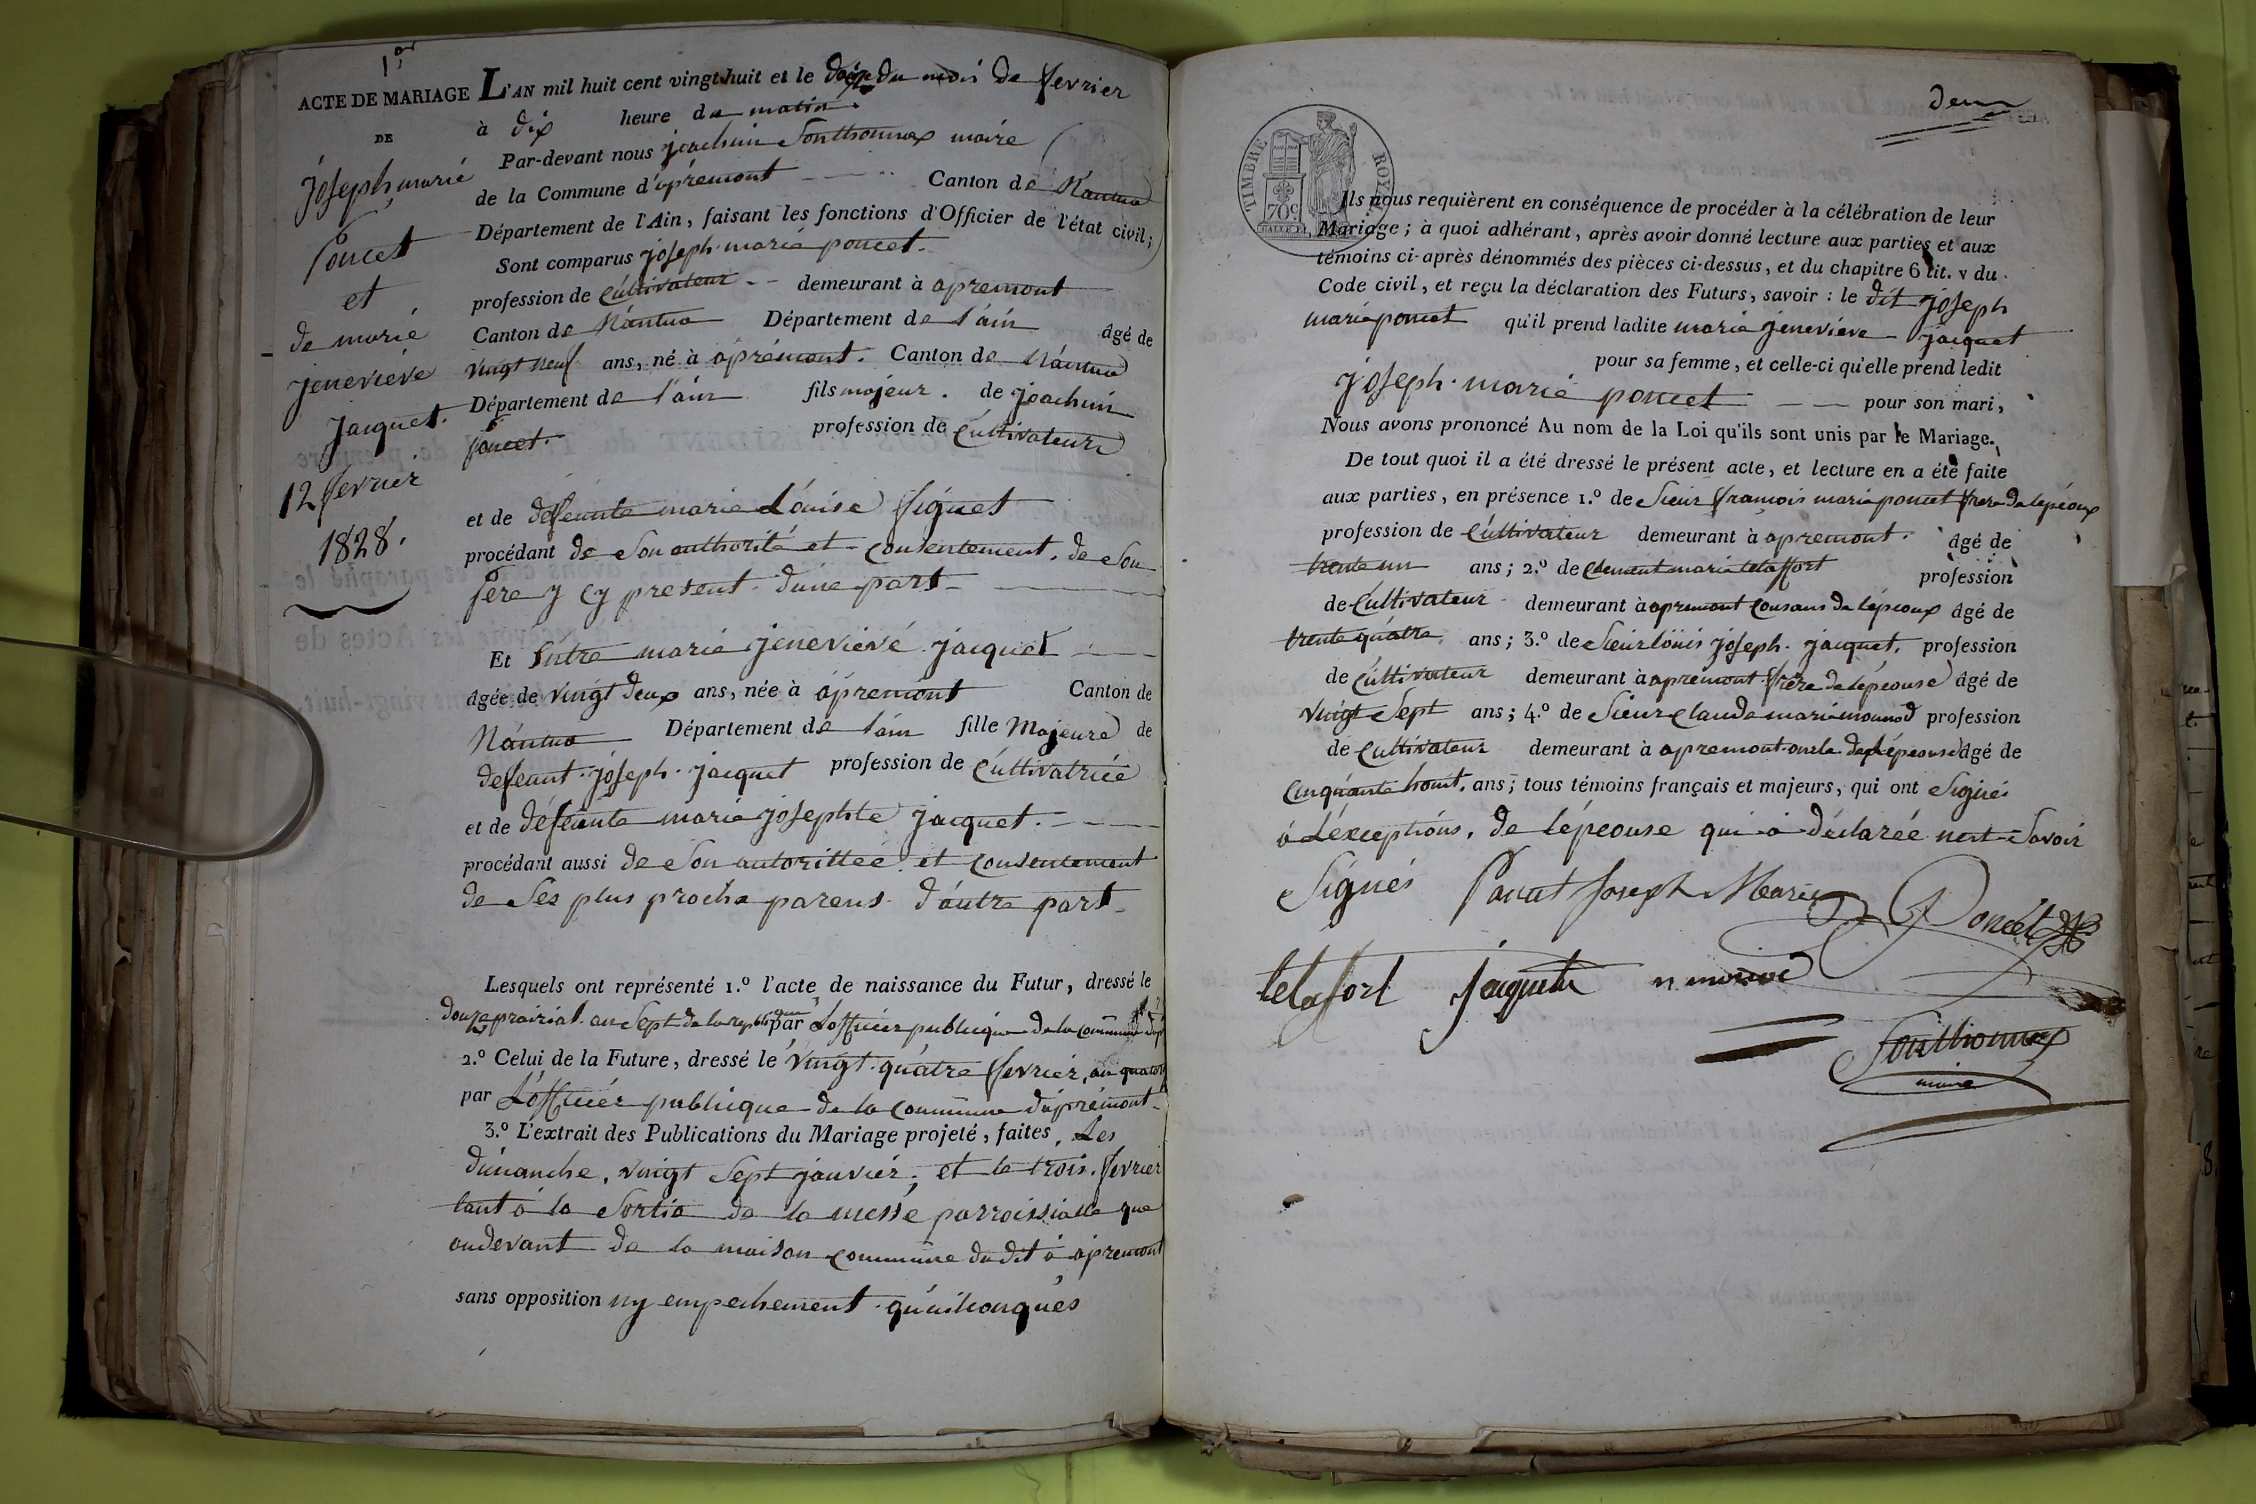 1er
ACTE DE MARIAGE
DE
joseph, marié
Poncet
et
de marié
jeneviéve
jacquet.
12 fevrier
1828.
L'AN mil huit cent vingt-huit et le douze du mois de fevrier
à dix heure du matin.
Par-devant nous joachim Sonthonnax maire
de la Commune d'apremont Canton de Nantua
Département de l'Ain, faisant les fonctions d'Officier de l'état civil;
Sont comparus joseph marié poncet.
profession de cultivateur demeurant à apremont
Canton de Nantua Département de l'ain âgé de
vingt neuf ans, né à apremont. Canton de Nantua
Département de l'ain fils majeur. de joachim
poncet. profession de cultivateur
et de defeunte marie Louise figuet
procédant de Son authorité et consentement. de Son
Pere y cy present d'une part
Et Entre marié jeneviévé jacquet
âgée de vingt deux ans, née à apremont Canton de
Nantua Département de l'ain fille Majeure de
defeunt joseph jacquet profession de cultivatricé
et de défeunte marie josephte jacquet.
procédant aussi de Son autorittéé et consentement
de Ses plus proche parens d'autre part
Lesquels ont représenté 1.º l'acte de naissance du Futur, dressé le
douze prairial an Sept de la republique par Lofficier publique de la commune
2.º Celui de la Future, dressé le vingt quatre fevrier, an
par L'officiér publique de la commune d'apremont
3.º L'extrait des Publications du Mariage projeté, faites Les
dimanche, vingt Sept janviér, et le trois fevrier
tant à la Sortie de la messé parroissialle que
audevant de la maison commune du dit à apremont
sans opposition ny empechement quaihonqués
deux
TIMBRE ROYAL
70c
Ils nous requièrent en conséquence de procéder à la célébration de leur
Mariage; à quoi adhérant, après avoir donné lecture aux parties et aux
témoins ci-après dénommés des pièces ci-dessus, et du chapitre 6 tit. v du
Code civil, et reçu la déclaration des Futurs, savoir : le dit joseph
marie poncet qu'il prend ladite marie jeneviève jacquet
pour sa femme, et celle-ci qu'elle prend ledit
joseph marié poncet pour son mari,
Nous avons prononcé Au nom de la Loi qu'ils sont unis par le Mariage.
De tout quoi il a été dressé le présent acte, et lecture en a été faite
aux parties, en présence 1.º de Sieur francois marie poncet frere de lepéoux
profession de cultivateur demeurant à apremont. âgé de
trente un ans; 2.º de Clement marie letaffort profession
de cultivateur demeurant à apremont cousans de lépeoux âgé de
trente quatre ans; 3.º de Sieur loüis joseph jacquet. profession
de cultivateur demeurant à apremont frére de lépéouse âgé de
vingt Sept ans; 4.º de Sieur claude marie mounod profession
de cultivateur demeurant à apremont oncle de lépeouse âgé de
cinquante houit. ans; tous témoins français et majeurs, qui ont Signés
à L'éxceptións, de lépeouse qui a déclaréé nest Savoir
Signés Poncet Joseph Marie Poncet
letafort jaquet mounod
Sonthonnax
maire